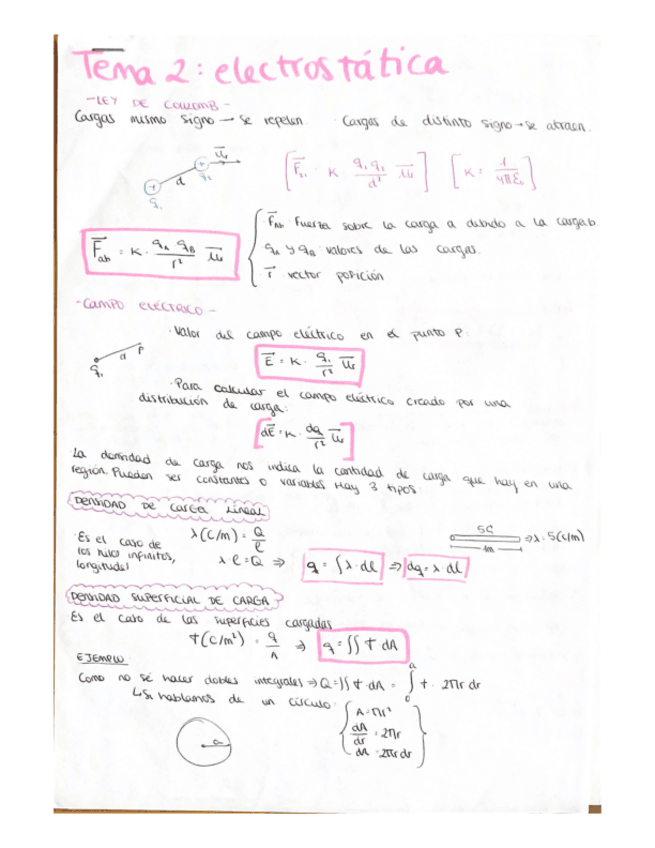 Tema 2: electrostática
-LEY DE COULOMB-
Cargas mismo signo → se repelen. · Cargas de distinto signo → se atraen.
[F⃗₂₁ = K · q₁ q₂ / d² u⃗r] [K = 1 / 4πε₀]
q₁ d q₂ u⃗r
F⃗ab = K · qA qB / r² u⃗r
F⃗Ab: Fuerza sobre la carga a debido a la carga b
qA y qB: valores de las cargas.
r⃗: vector posición
-CAMPO ELÉCTRICO-
· Valor del campo eléctrico en el punto P:
q₁ d P
E⃗ = K · q₁ / r² u⃗r
· Para calcular el campo eléctrico creado por una
distribución de carga:
dE⃗ = K · dq / r² u⃗r
La densidad de carga nos indica la cantidad de carga que hay en una
región. Pueden ser constantes o variables. Hay 3 tipos:
DENSIDAD DE CARGA LINEAL
· Es el caso de
los hilos infinitos,
longitudes
λ(C/m) = Q / ℓ
λ · ℓ = Q ⇒ q = ∫λ·dℓ ⇒ dq = λ·dℓ
5C
1m
⇒ λ = 5(C/m)
DENSIDAD SUPERFICIAL DE CARGA
Es el caso de las superficies cargadas
σ(C/m²) = q / A ⇒ q = ∫∫ σ dA
EJEMPLO
Como no sé hacer dobles integrales ⇒ Q = ∫∫ σ · dA = ∫₀ᵃ σ · 2πr dr
↳ Si hablamos de un círculo:
A = πr²
dA / dr = 2πr
dA = 2πr dr
a